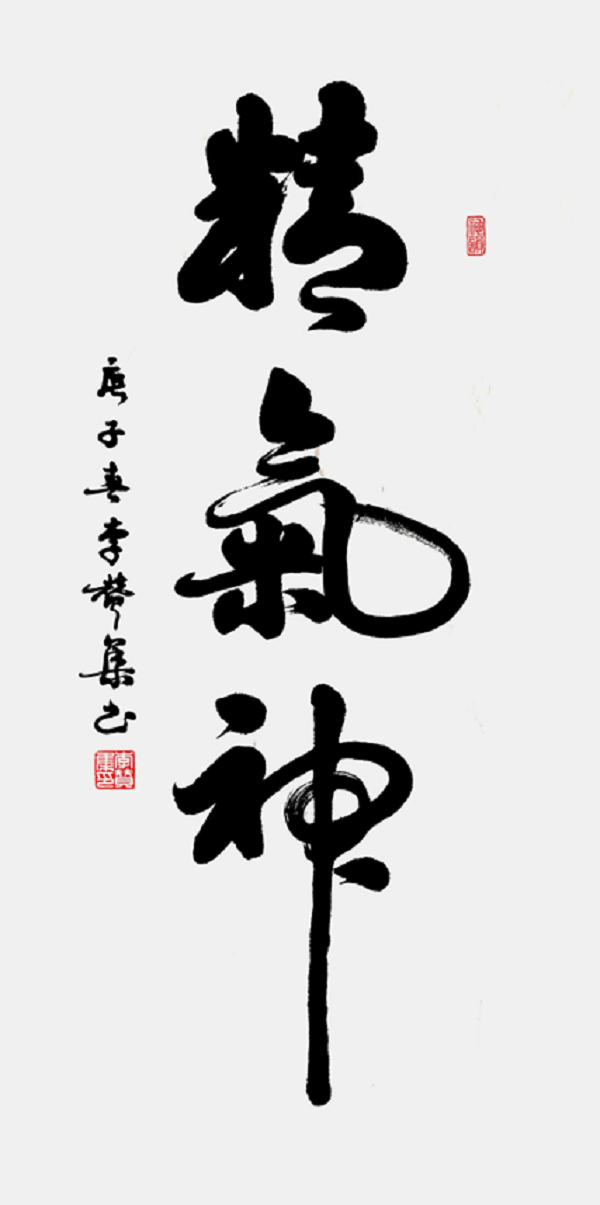 精氣神
庚子春李贊集書